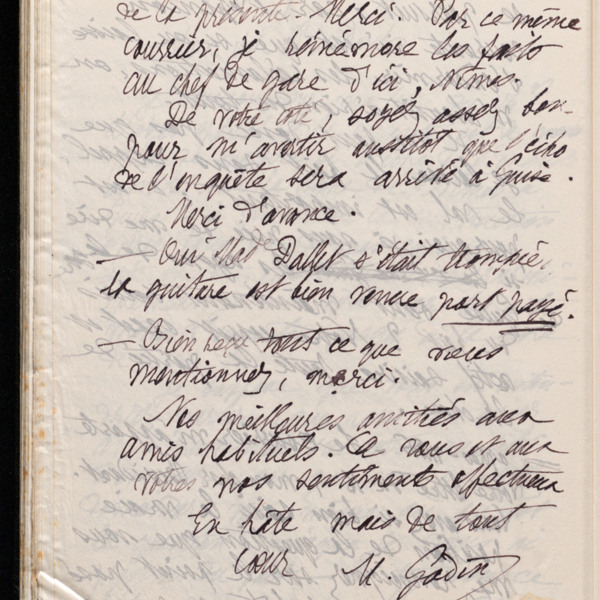 de la présente. Merci. Par ce même
courrier, je remémore les faits
au chef de gare d'ici, Nîmes.
De votre côté, soyez assez bon
pour m'avertir aussitôt que l'écho
de l'enquête sera arrivé à Guise.
Merci d'avance.
— Oui Mad Dallet s'était trompée,
la guitare est bien venue port payé.
— Bien reçu tout ce que vous
mentionnez, merci.
Nos meilleures amitiés aux
amis habituels. A vous et aux
votres nos sentiments affectueux
En hâte mais de tout
cœur M. Godin